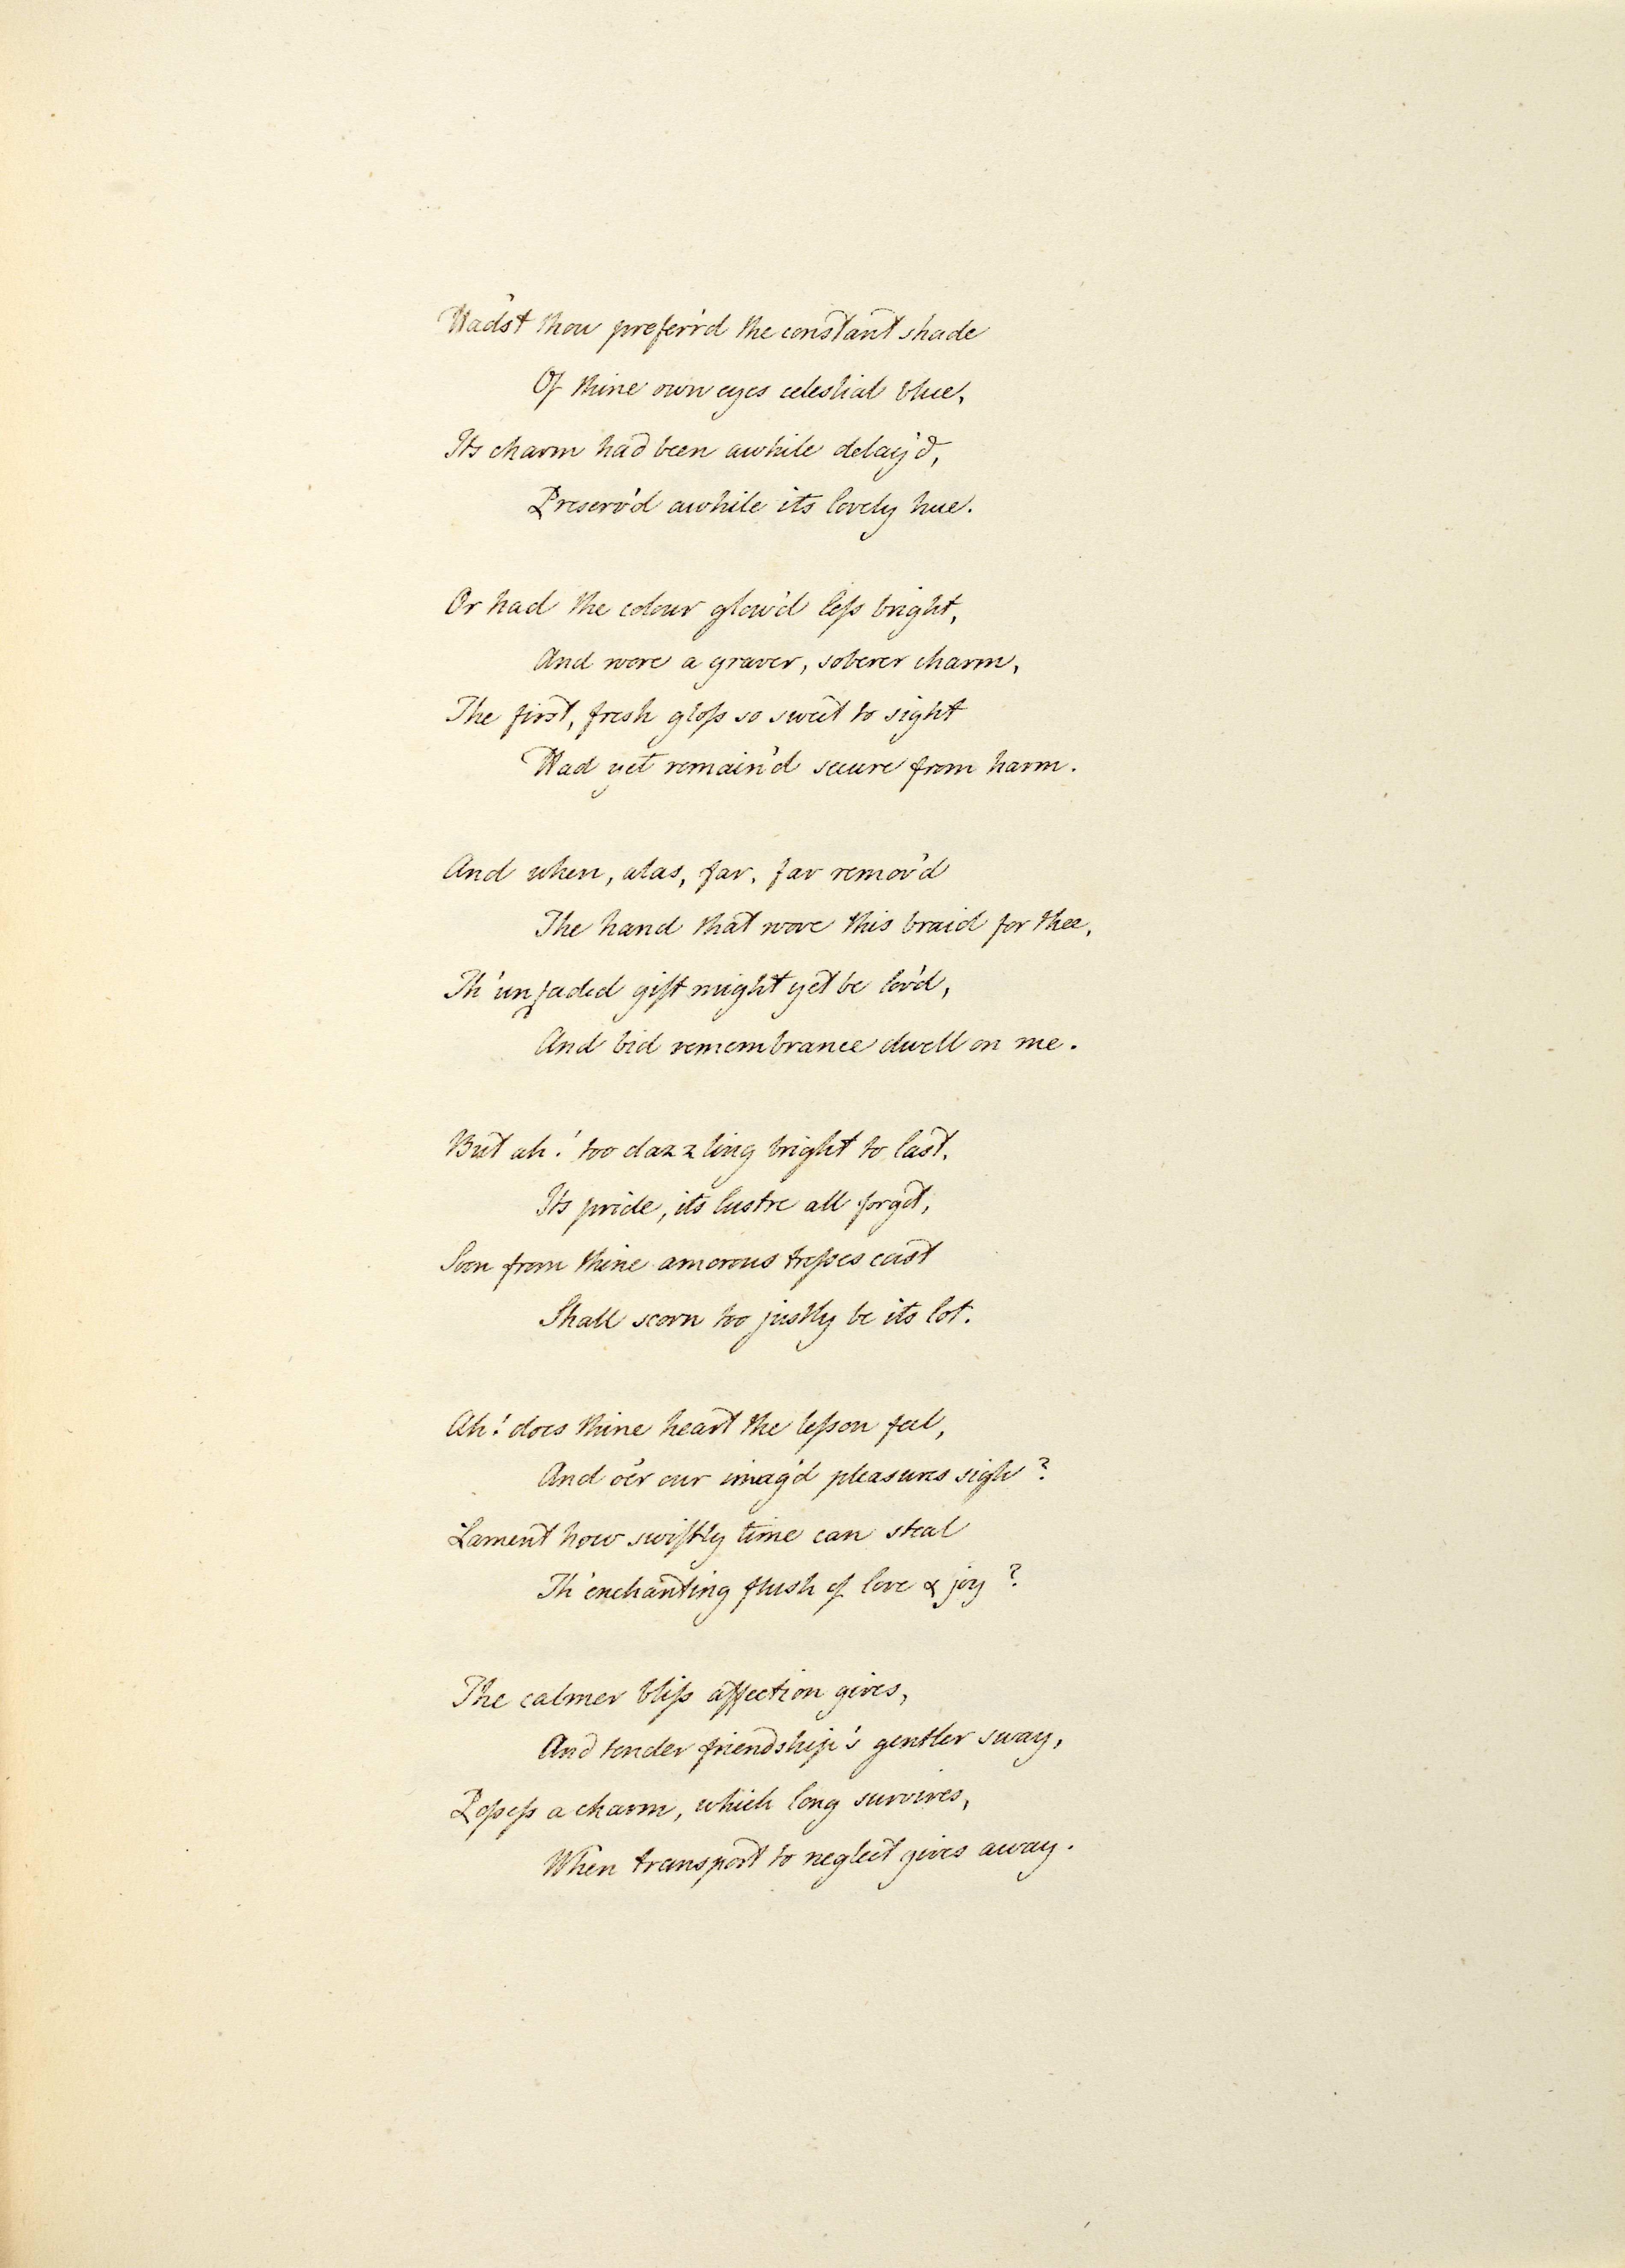 Had'st thou preferr'd the constant shade
Of thine own eyes celestial blue,
Its charm had been awhile delay'd,
Preserv'd awhile its lovely hue.
Or had the colour glow'd leſs bright,
And wore a graver, soberer charm,
The first, fresh gloſs so sweet to sight
Had yet remain'd secure from harm.
And when, alas, far, far remov'd
The hand that wove this braid for thee,
Th'unfaded gift might yet be lov'd,
And bid remembrance dwell on me.
But ah! too dazzling bright to last,
Its pride, its lustre all forgot,
Soon from thine amorous treſses cast
Shall scorn too justly be its lot.
Ah! does thine heart the leſson feel,
And o'er our imag'd pleasures sigh?
Lament how swiftly time can steal
Th'enchanting flush of love & joy?
The calmer bliſs affection gives,
And tender friendship's gentler sway,
Poſseſs a charm, which long survives,
When transport to neglect gives away.